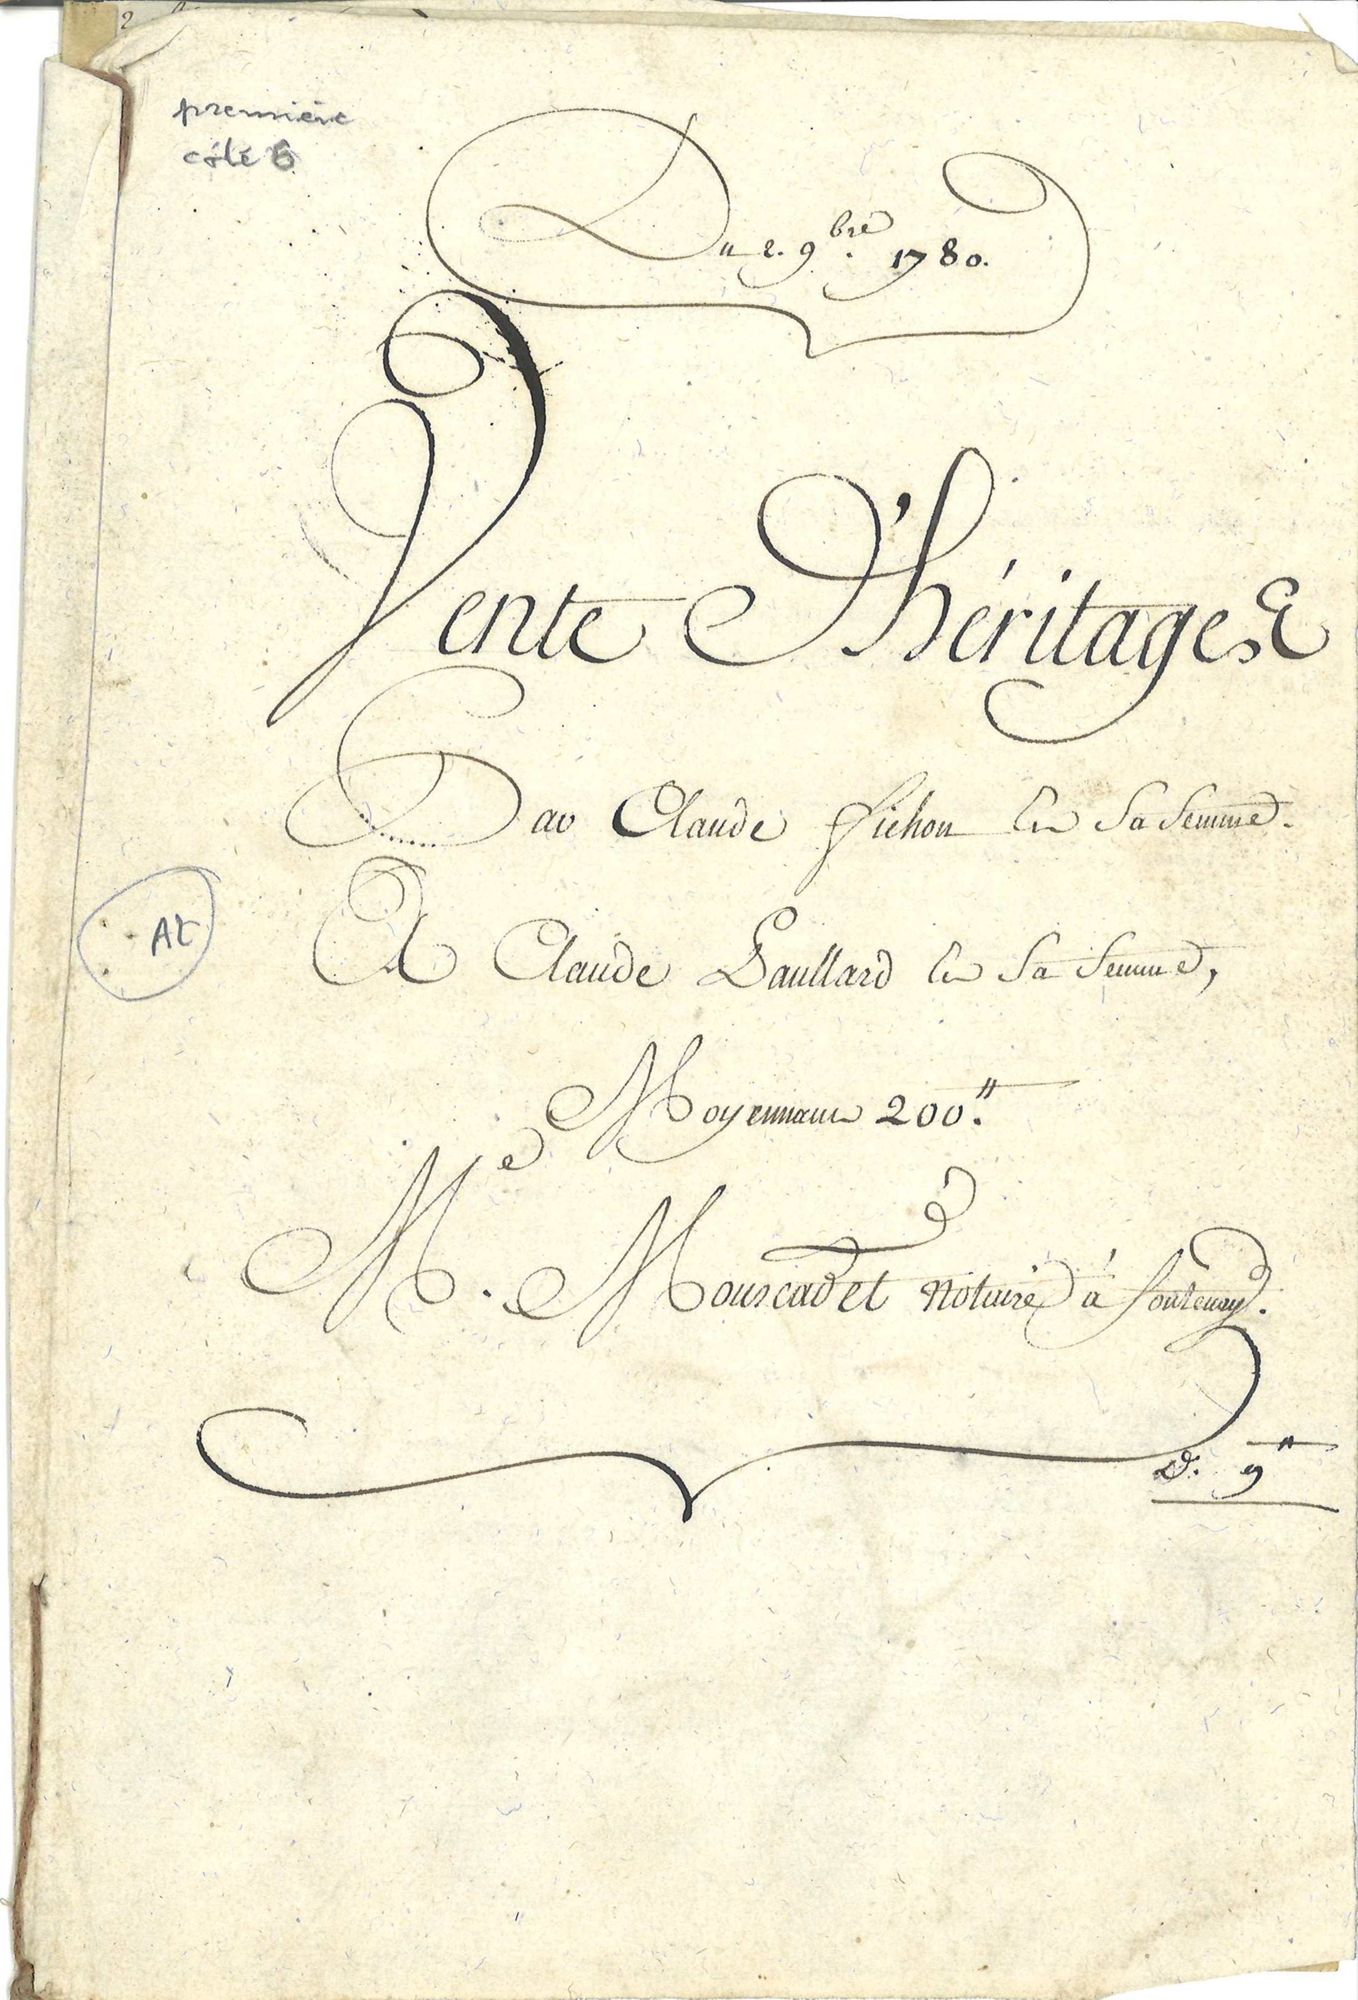 première
côté 6
Du 2. 9.bre 1780.
Vente D'héritages
Par Claude Pichon Et Sa femme.
A Claude Paullard Et Sa femme,
Moyennant 200.#
Me. Mouscadet Notaire à fontenoy.
D. 9#